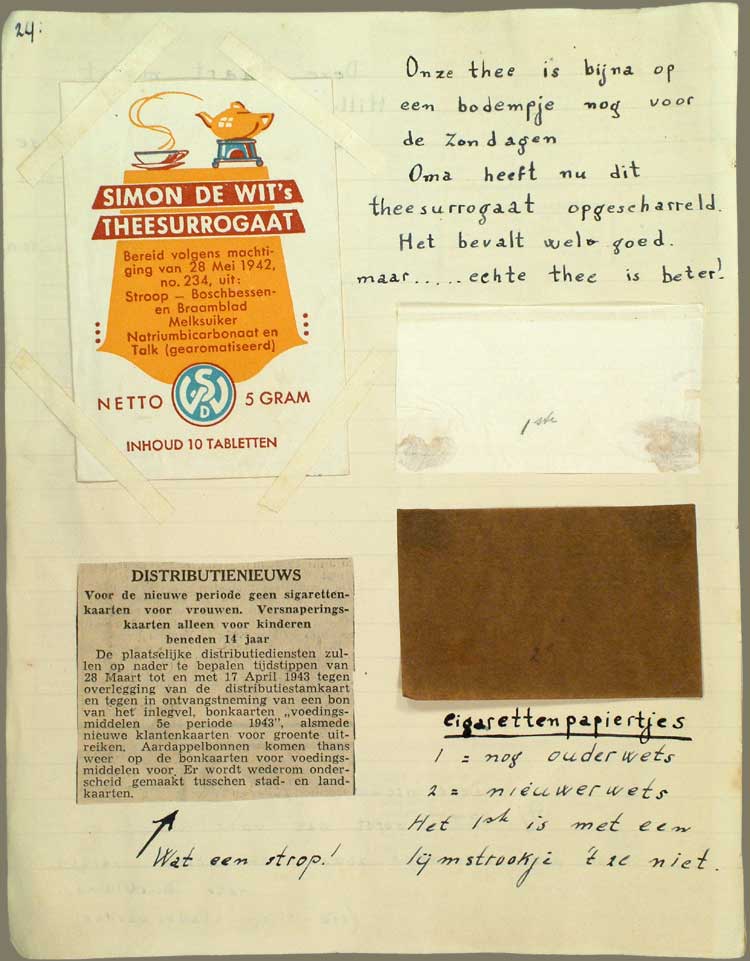 24:
Onze thee is bijna op
een bodempje nog voor
de Zondagen
Oma heeft nu dit
theesurrogaat opgescharreld.
Het bevalt wel goed.
maar.....echte thee is beter!
SIMON DE WIT's
THEESURROGAAT
Bereid volgens machti-
ging van 28 Mei 1942,
no. 234, uit:
Stroop — Boschbessen-
en Braamblad
Melksuiker
Natriumbicarbonaat en
Talk (gearomatiseerd)
NETTO SDW 5 GRAM
INHOUD 10 TABLETTEN
1ste
2e
DISTRIBUTIENIEUWS
Voor de nieuwe periode geen sigaretten-
kaarten voor vrouwen. Versnaperings-
kaarten alleen voor kinderen
beneden 14 jaar
De plaatselijke distributiediensten zul-
len op nader te bepalen tijdstippen van
28 Maart tot en met 17 April 1943 tegen
overlegging van de distributiestamkaart
en tegen in ontvangstneming van een bon
van het inlegvel, bonkaarten „voedings-
middelen 5e periode 1943”, alsmede
nieuwe klantenkaarten voor groente uit-
reiken. Aardappelbonnen komen thans
weer op de bonkaarten voor voedings-
middelen voor. Er wordt wederom onder-
scheid gemaakt tusschen stad- en land-
kaarten.
Wat een strop!
Cigarettenpapiertjes
1 = nog ouderwets
2 = nieuwerwets
Het 1ste is met een
lijmstrookje 't 2e niet.